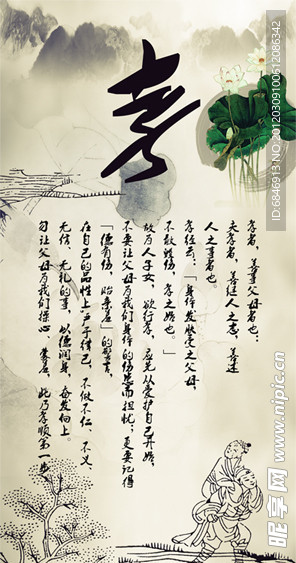 孝
孝者，善事父母者也；
夫孝者，善继人之志，善述
人之事者也
孝经云：「身体发肤受之父母，
不敢毁伤，孝之始也。」
故为人子女，欲行孝，应先从爱护自己开始，
不要让父母为我们身体的伤患而担忧；更要记得
「德有伤，贻亲羞」的圣言，
在自己的品性上严于律己，不做不仁、不义、
无信、无礼的事，以德润身，奋发向上。
勿让父母为我们操心、蒙羞，此乃孝顺第一步
ID:6846913 NO:20120309100612086342
昵享网